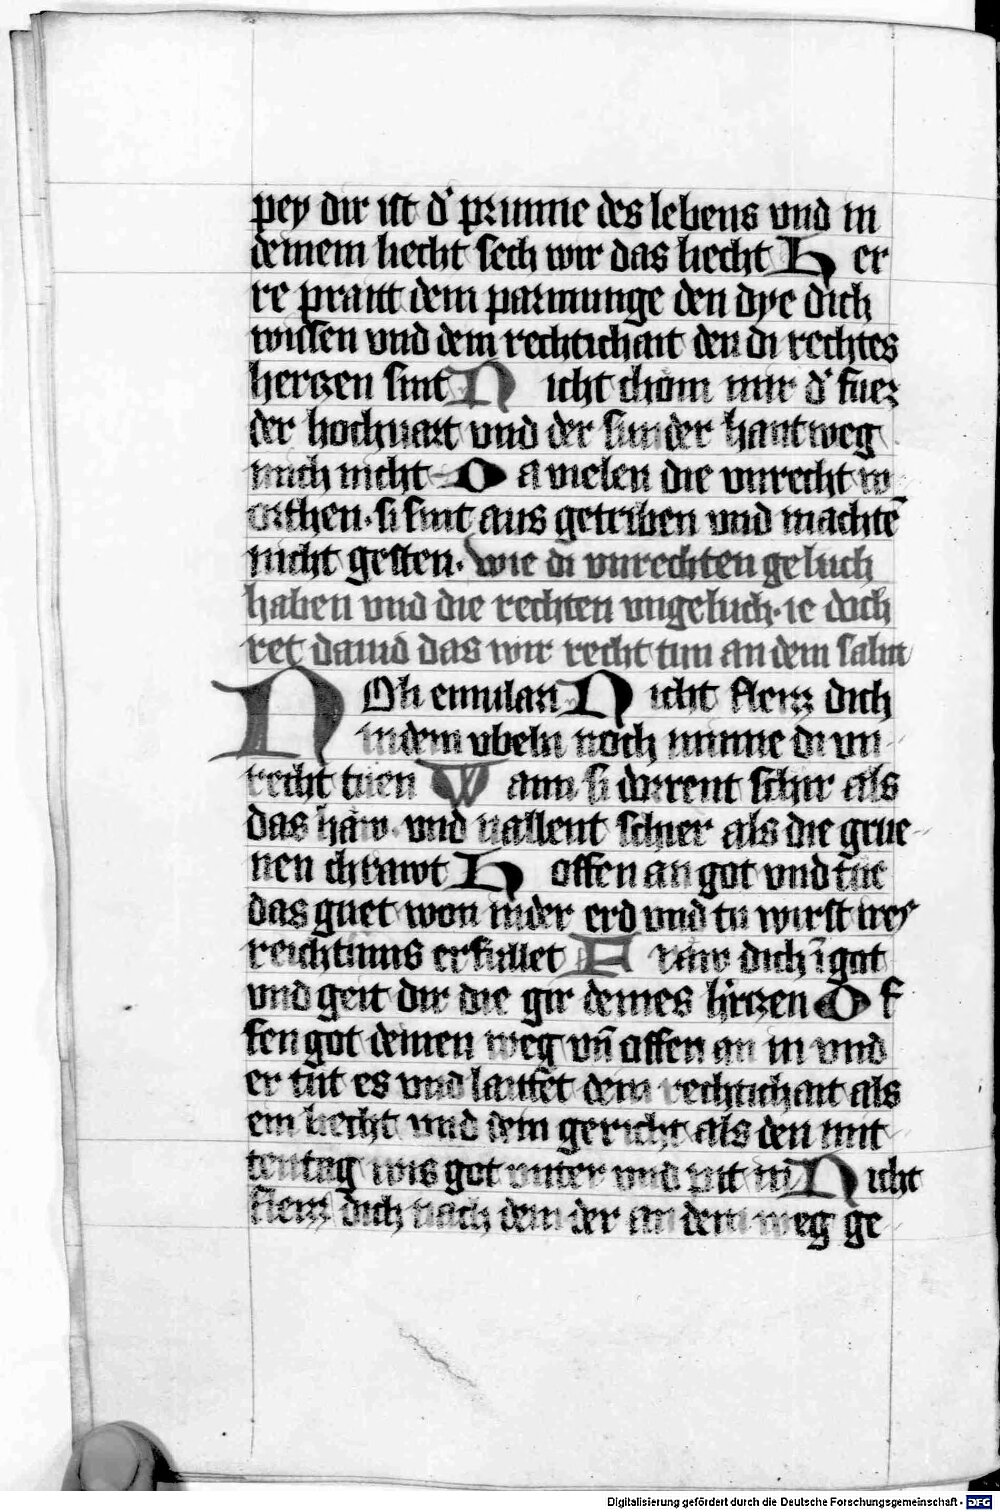 pey dir ist d' prunne des lebens vnd in
deinem liecht sech wir das liecht H er
re prait dein parmunge den dye dich
wissen vnd dein rechtichait den di rechtes
herczen sint N icht chöm mir d' fuez
der hochuart vnd der sunder hant weg
mich nicht D a vielen die vnrecht w
orthen · si sint aus getriben vnd machtē
nicht gesten · Wie di vnrechten geluch
haben vnd die rechten vngeluch · ie doch
ret dauid das wir recht tun an dem salm
NOli emulari N icht fleiz dich
in dem vbeln noch minne di vn
recht tuen W ann si dorrent schir als
das häw · vnd vallent schier als die grue
nen chrawt H offen an got vnd tue
das guet won in der erd vnd tu wirst irer
reichtums erfullet F räw dich ī got
vnd geit dir die gir deines h'rczen O f
fen got deinen weg vn̄ offen an in vnd
er tut es vnd laittet dein rechtichait als
ein liecht vnd dein gericht als den mit
tentag wis got vnter vnd pit in N icht
fleiz dich nach dem der an dem weg ge